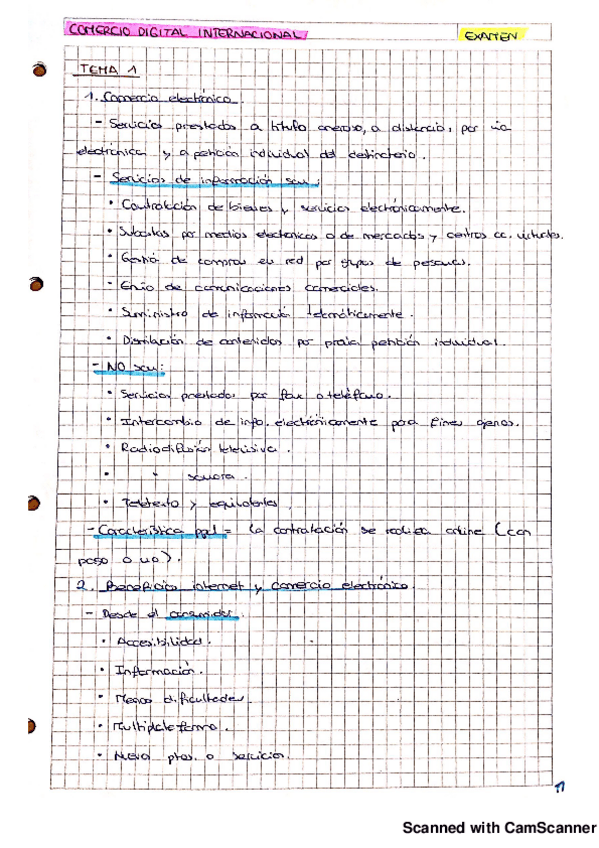 COMERCIO DIGITAL INTERNACIONAL EXAMEN
TEMA 1
1. Comercio electrónico.
- Servicios prestados a título oneroso, a distancia, por vía
electrónica y a petición individual del destinatario.
- Servicios de información son:
• Contratación de bienes y servicios electrónicamente.
• Subastas por medios electrónicos o de mercados y centros cc. virtuales.
• Gestión de compras en red por grupos de personas.
• Envío de comunicaciones comerciales.
• Suministro de información telemáticamente.
• Distribución de contenidos por previa petición individual.
- NO son:
• Servicios prestados por fax o teléfono.
• Intercambio de info. electrónicamente para fines ajenos.
• Radiodifusión televisiva.
• " sonora.
• Teletexto y equivalentes.
- Característica ppal = la contratación se realiza online (con
pago o no).
2. Beneficios internet y comercio electrónico.
- Desde el consumidor
• Accesibilidad.
• Información.
• Menos dificultades.
• Multiplataforma.
• Nuevos o servicios.
1
Scanned with CamScanner